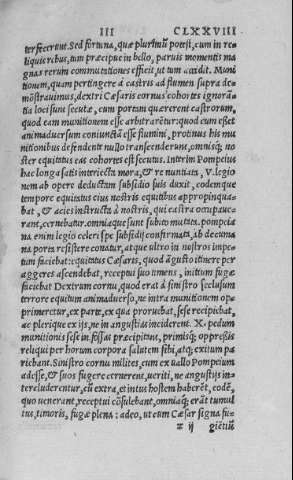 III CLXXVIII
terfecerunt. Sed fortuna, quæ plurimũ potest, cum in re=
liquis rebus, tum præcipue in bello, paruis momentis ma
gnas rerum commutationes efficit, ut tum accidit. Muni
tionum, quam pertingere à castris ad flumen supra de=
mõstrauimus, dextri Cæsaris cornus cohortes ignorãn
tia loci sunt secutæ, cum portam quærerent castrorum,
quod eam munitionem esse arbitrarẽtur: quod cum esset
animaduersum coniunctã esse flumini, protinus his mu
nitionibus defendente nullo transcenderunt, omnisq; no
ster equitatus eas cohortes est secutus. Interim Pompeius
hac longa satis interiecta mora, & re nuntiata, V. legio
nem ab opere deductam subsidio suis duxit, eodemque
tempore equitatus eius nostris equitibus appropinqua=
bat, & acies instructa à nostris, qui castra occupaue=
rant, cernebatur. omniaque sunt subito mutata. pompeia
na enim legio celeri spe subsidij confirmata, ab decuma
na porta resistere conatur, atque ultro in nostros impe=
tum faciebat: equitatus Cæsaris, quod ãgusto itinere per
aggeres ascendebat, receptui suo timens, initium fugæ
faciebat. Dextrum cornu, quod erat à sinistro seclusum
terrore equitum animaduerso, ne intra munitionem op=
primeretur, ex parte, ex qua proruebat, sese recipiebat,
ac plerique ex ijs, ne in angustias inciderent. X. pedum
munitionis sese in fossas præcipitant, primisq; oppressis
reliqui per horum corpora salutem sibi, atq; exitum pa
riebant. Sinistro cornu milites, cum ex uallo Pompeium
adesse, & suos fugere cernerent, ueriti, ne angustijs in=
tercluderentur, cũ extra, et intus hostem haberẽt, eodẽ,
quo uenerant, receptui cõsulebant, omniaq; erãt tumul
tus, timoris, fugæ plena: adeo, ut cum Cæsar signa fu=
z ij giẽtiũ